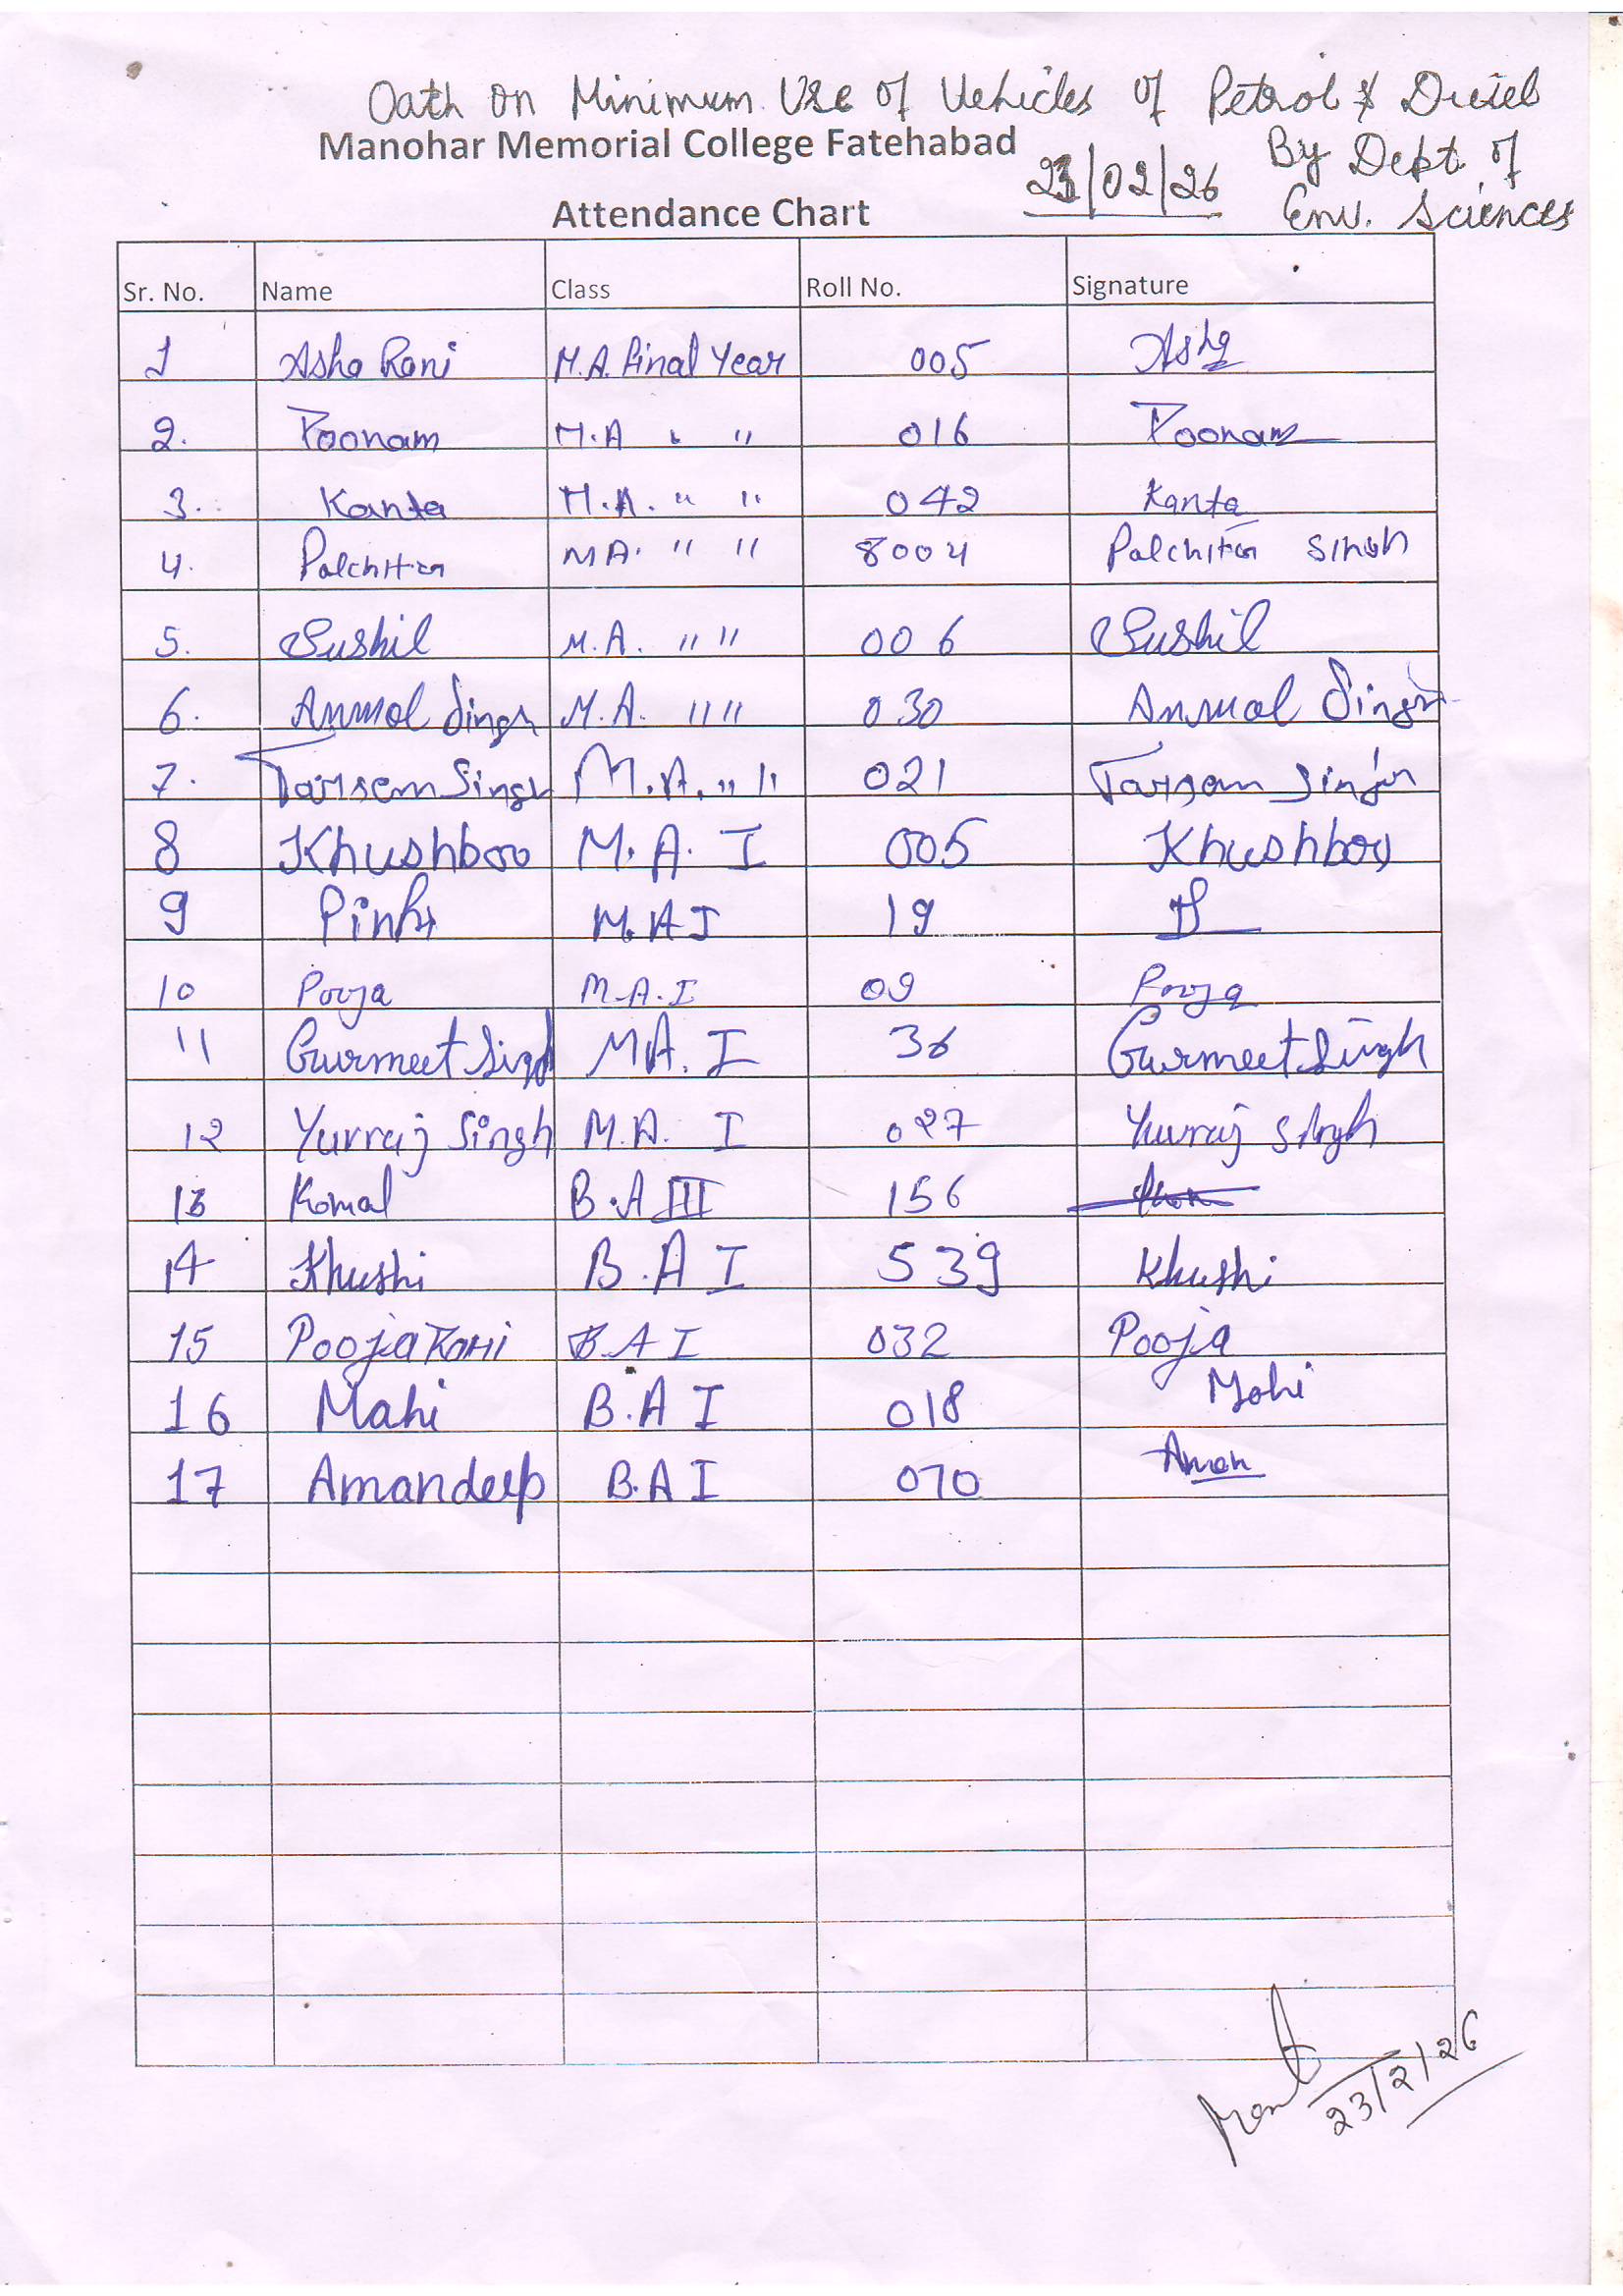 Oath on Minimum Use of Vehicles of Petrol & Diesel
Manohar Memorial College Fatehabad
23/02/26
By Dept. of
Env. Sciences
Attendance Chart
Sr. No. Name Class Roll No. Signature
1 Asha Rani M.A. Final Year 005 Asha
2. Poonam M.A " " 016 Poonam
3. Kanta M.A. " " 042 Kanta
4. Palchitra MA. " " 8004 Palchitra Singh
5. Sushil M.A. " " 006 Sushil
6. Anmol Singh M.A. " " 030 Anmol Singh
7. Tarsem Singh M.A. " " 021 Tarsem Singh
8 Khushboo M.A. I 005 Khushboo
9 Pinki M.A I 19
10 Pooja M.A.I 09 Pooja
11 Gurmeet Singh MA. I 36 Gurmeet Singh
12 Yuvraj Singh M.A. I 027 Yuvraj Singh
13 Komal B.A III 156
14 Khushi B.A I 539 Khushi
15 Pooja Rani B.A I 032 Pooja
16 Mahi B.A I 018 Mahi
17 Amandeep B.A I 070 Aman
23/2/26